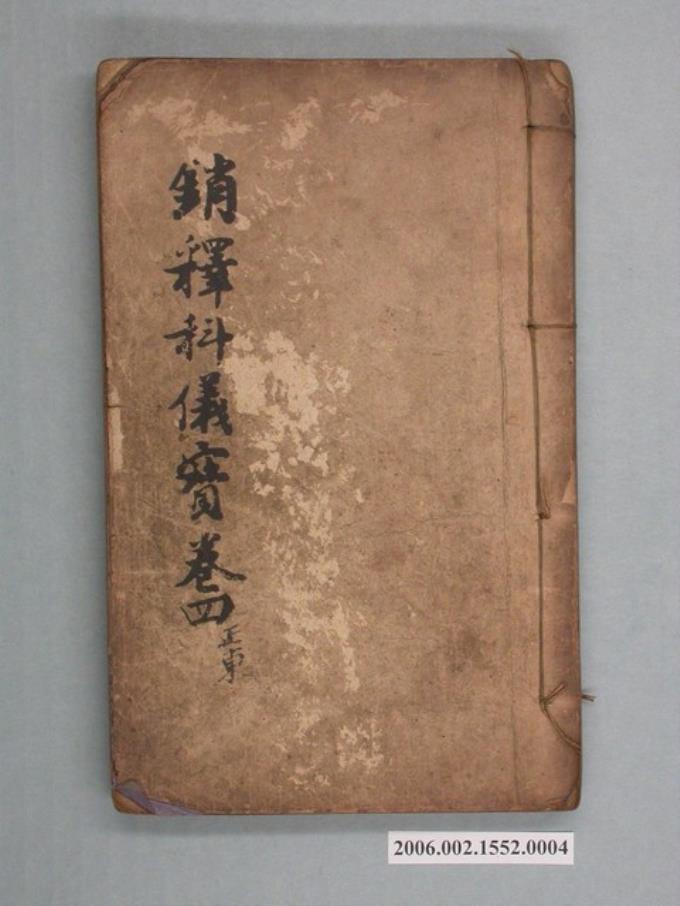 銷釋科儀寶卷四
正東
2006.002.1552.0004